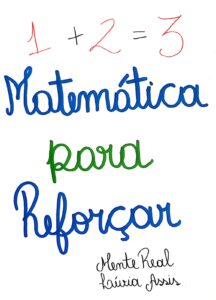 1 + 2 = 3
Matemática
para
Reforçar
Mente Real
Lívia Assis